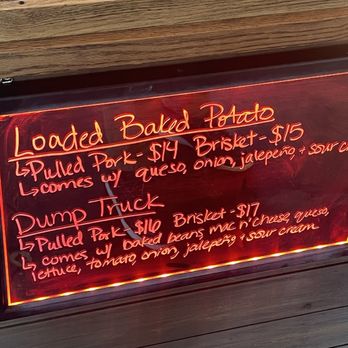 Loaded Baked Potato
↳Pulled Pork-$14 Brisket-$15
↳comes w/ queso, onion, jalepeño, + sour
Dump Truck
↳Pulled Pork-$16 Brisket-$17
↳comes w/ baked beans, mac n' cheese, queso,
lettuce, tomato, onion, jalepeño + sour cream